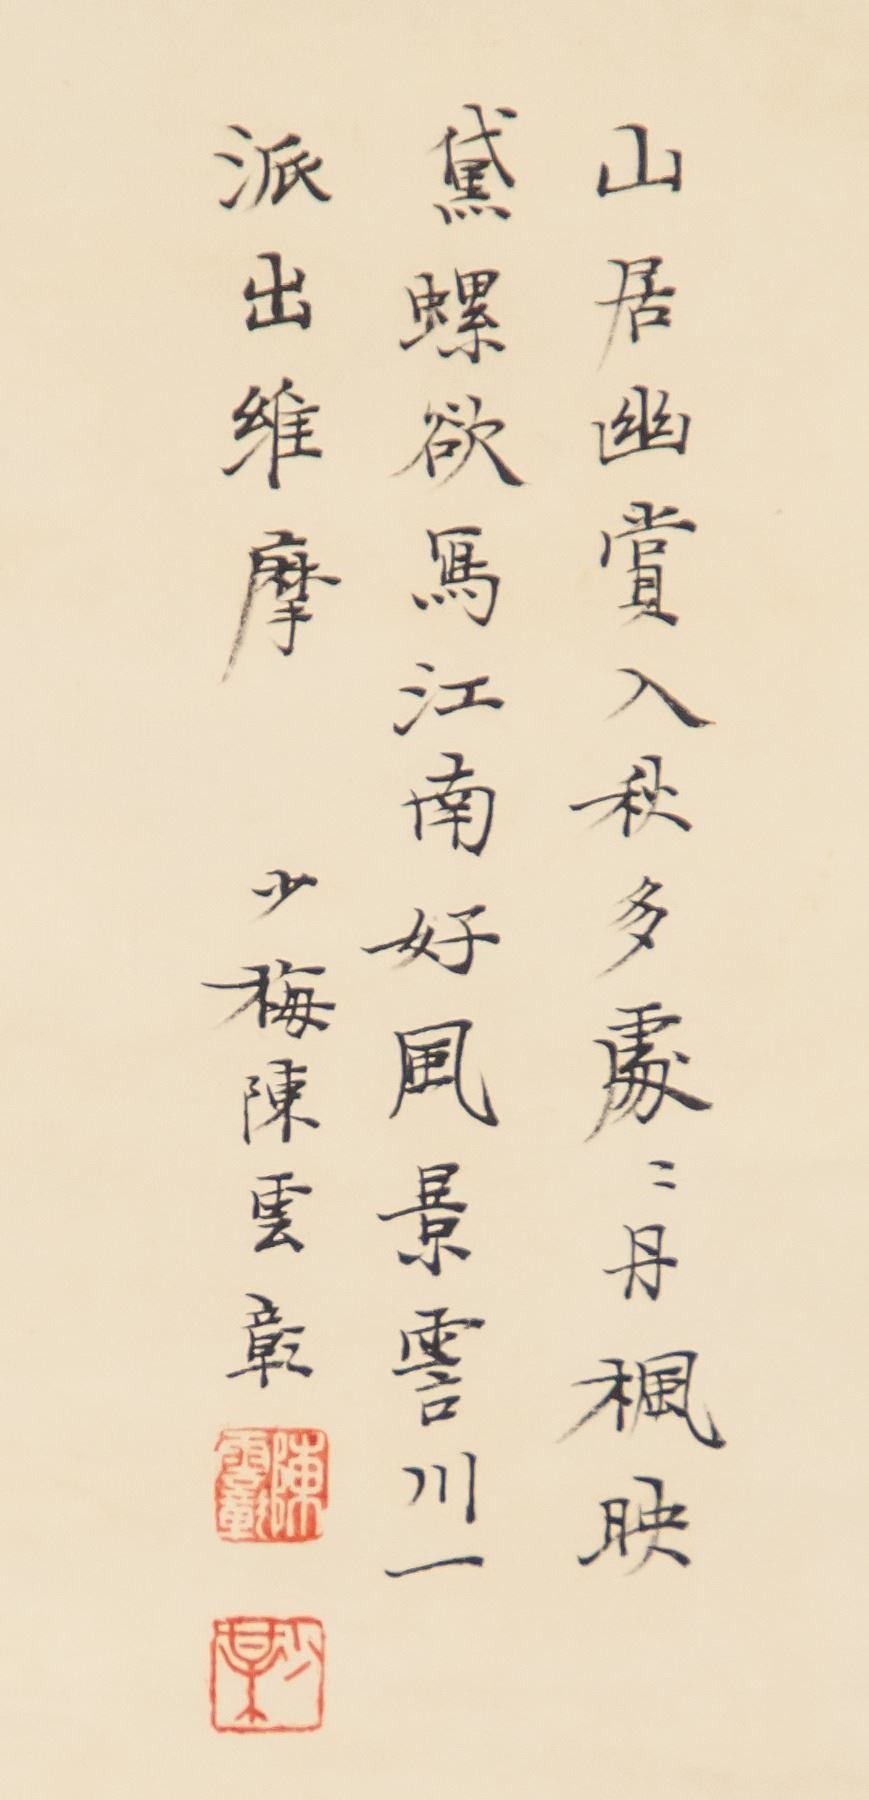 山居幽賞入秋多處〻丹楓映
黛螺欲寫江南好風景雪川一
派出維摩
少梅陳雲彰
陳雲彰
少某